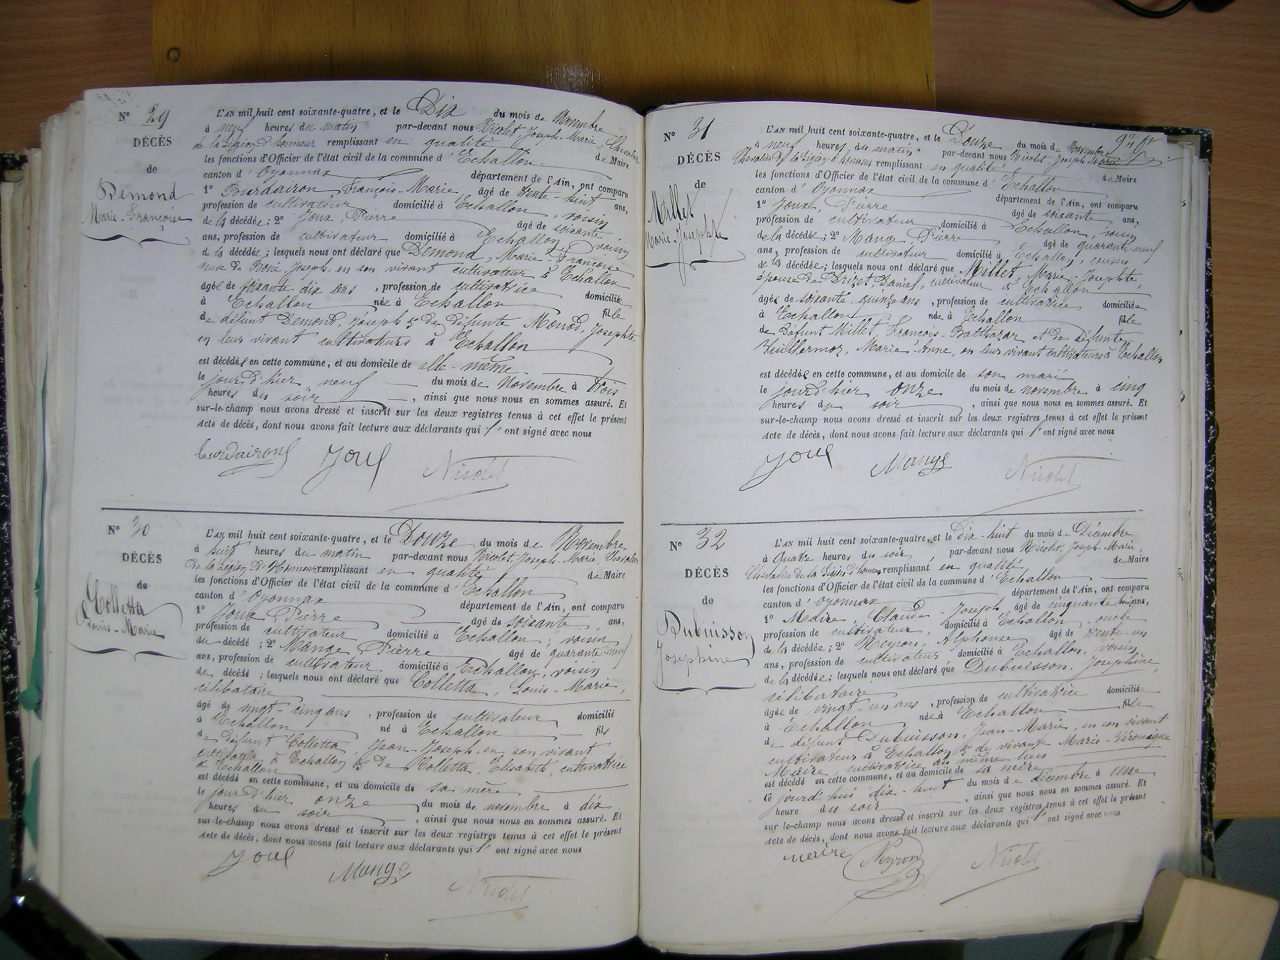 N° 29
DÉCÈS
de
Démond
Marie-Françoise
L'AN mil huit cent soixante-quatre, et le Dix du mois de Novembre
à neuf heures du matin par-devant nous Nicolet, Joseph-Marie, Chevalier
de la Légion d'honneur remplissant en qualité de Maire
les fonctions d'Officier de l'état civil de la commune d'Echallon
canton d'Oyonnax département de l'Ain, ont comparu
1° Burdairon François-Marie âgé de trente-huit ans,
profession de cultivateur domicilié à Echallon, voisin
de la décédée; 2° Joux, Pierre âgé de soixante
ans, profession de cultivateur domicilié à Echallon, voisin
de la décédée; lesquels nous ont déclaré que Démond, Marie-Françoise
veuve de Joseph, en son vivant cultivateur à Echallon
âgée de soixante dix ans, profession de cultivatrice domiciliée
à Echallon née à Echallon fille
de défunt Démond, Joseph & de défunte Monod, Josephte
en leur vivant cultivateurs à Echallon
est décédée en cette commune, et au domicile de elle-même
le jourd'hier neuf du mois de Novembre à trois
heures du soir, ainsi que nous nous en sommes assuré. Et
sur-le-champ nous avons dressé et inscrit sur les deux registres tenus à cet effet le présent
acte de décès, dont nous avons fait lecture aux déclarants qui l'ont signé avec nous
Burdairon Joux Nicolet
N° 30
DÉCÈS
de
Colletta
Louis-Marie
L'AN mil huit cent soixante-quatre, et le Douze du mois de Novembre
à huit heures du matin par-devant nous Nicolet, Joseph-Marie, Chevalier
de la Légion d'Honneur remplissant en qualité de Maire
les fonctions d'Officier de l'état civil de la commune d'Echallon
canton d'Oyonnax département de l'Ain, ont comparu
1° Joux Pierre âgé de soixante ans,
profession de cultivateur domicilié à Echallon, voisin
du décédé; 2° Mange Pierre âgé de quarante neuf
ans, profession de cultivateur domicilié à Echallon, voisin
de décédé; lesquels nous ont déclaré que Colletta, Louis-Marie,
célibataire
âgé de vingt-cinq ans, profession de cultivateur domicilié
à Echallon né à Echallon fils
de défunt Colletta, Jean-Joseph, en son vivant
à Echallon & de Colletta, Elisabeth, cultivatrice
à Echallon
est décédé en cette commune, et au domicile de sa mère
le jourd'hier onze du mois de novembre à dix
heures du soir, ainsi que nous nous en sommes assuré. Et
sur-le-champ nous avons dressé et inscrit sur les deux registres tenus à cet effet le présent
acte de décès, dont nous avons fait lecture aux déclarants qui l'ont signé avec nous
Joux Mange Nicolet
N° 31
DÉCÈS
de
Millet
Marie-Josephte
L'AN mil huit cent soixante-quatre, et le Douze du mois de Novembre
à neuf heures du matin par-devant nous Nicolet, Joseph-Marie
Chevalier de la Légion d'honneur remplissant en qualité de Maire
les fonctions d'Officier de l'état civil de la commune d'Echallon
canton d'Oyonnax département de l'Ain, ont comparu
1° Joux, Pierre âgé de soixante ans,
profession de cultivateur domicilié à Echallon, voisin
de la décédée; 2° Mange, Pierre âgé de quarante neuf
ans, profession de cultivateur domicilié à Echallon, cousin
de la décédée; lesquels nous ont déclaré que Millet, Marie-Josephte,
épouse de Daniel, cultivateur à Echallon
âgée de soixante-quinze ans, profession de cultivatrice domiciliée
à Echallon née à Echallon fille
de défunt Millet, François-Balthazar et de défunte
Vuillermoz, Marie-Anne, en leur vivant cultivateurs à Echallon
est décédée en cette commune, et au domicile de son mari
le jourd'hier onze du mois de novembre à cinq
heures du soir, ainsi que nous nous en sommes assuré. Et
sur-le-champ nous avons dressé et inscrit sur les deux registres tenus à cet effet le présent
acte de décès, dont nous avons fait lecture aux déclarants qui l'ont signé avec nous
Joux Mange Nicolet
N° 32
DÉCÈS
de
Dubuisson
Joséphine
L'AN mil huit cent soixante-quatre, et le Dix huit du mois de Décembre
à quatre heures du soir, par-devant nous Nicolet, Joseph-Marie,
Chevalier de la Légion d'honneur remplissant en qualité de Maire
les fonctions d'Officier de l'état civil de la commune d'Echallon
canton d'Oyonnax département de l'Ain, ont comparu
1° Maire, Claude-Joseph, âgé de cinquante ans,
profession de cultivateur, domicilié à Echallon, oncle
de la décédée; 2° Neyron, Alphonse âgé de trente-un
ans, profession de cultivateur domicilié à Echallon, voisin
de la décédée; lesquels nous ont déclaré que Dubuisson, Joséphine,
célibataire
âgée de vingt-un ans, profession de cultivatrice domiciliée
à Echallon née à Echallon fille
de défunt Dubuisson, Jean-Marie, en son vivant
cultivateur à Echallon & de vivante Marie-Véronique
Maire cultivatrice au même lieu
est décédé en cette commune, et au domicile de sa mère
le jourd'hui dix-huit du mois de décembre à une
heure du soir, ainsi que nous nous en sommes assuré. Et
sur-le-champ nous avons dressé et inscrit sur les deux registres tenus à cet effet le présent
acte de décès, dont nous avons fait lecture aux déclarants qui l'ont signé avec nous
Maire Neyron Nicolet